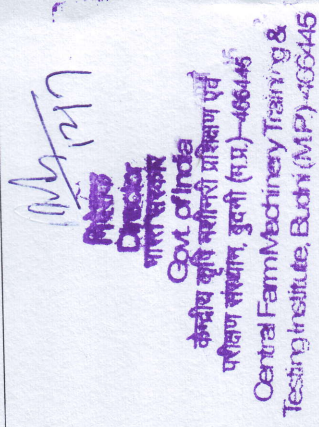 निदेशक
Director
भारत सरकार
Govt. of India
केन्द्रीय कृषि मशीनरी प्रशिक्षण एवं
परीक्षण संस्थान, बुदनी (म.प्र.)-466445
Central Farm Machinery Training &
Testing Institute, Budni (M.P.)-466445